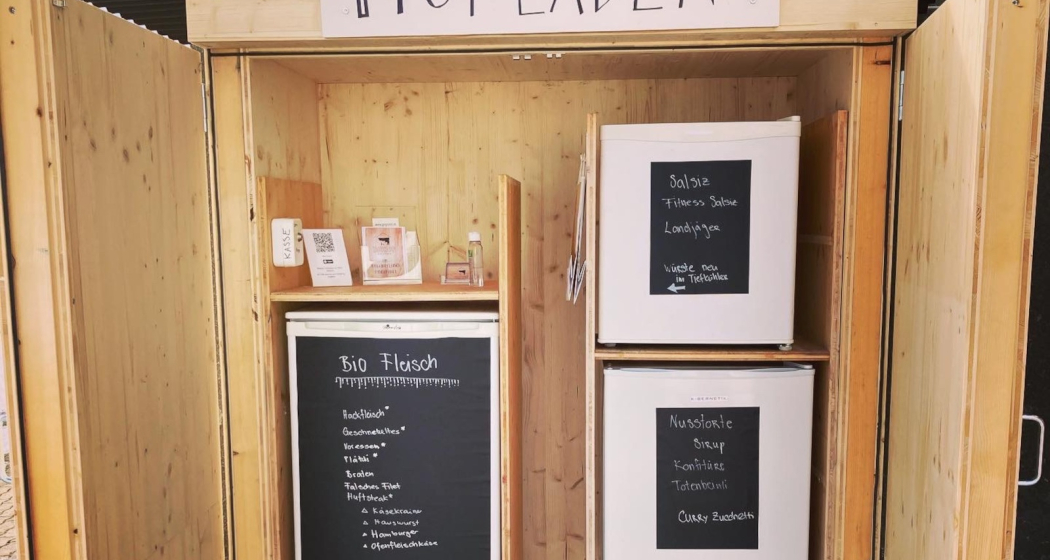 HOFLADEN
KASSE
Salsiz
Fitness Salsiz
Landjäger
Würste neu
im Tiefkühler
Bio Fleisch
Hackfleisch*
Geschnetzeltes*
Voressen*
Plätzli*
Braten
Falsches Filet
Huftsteak*
Käsekrainer
Hauswurst
Hamburger
Ofenfleischkäse
Nusstorte
Sirup
Konfitüre
Totenbeinli
Curry Zucchetti